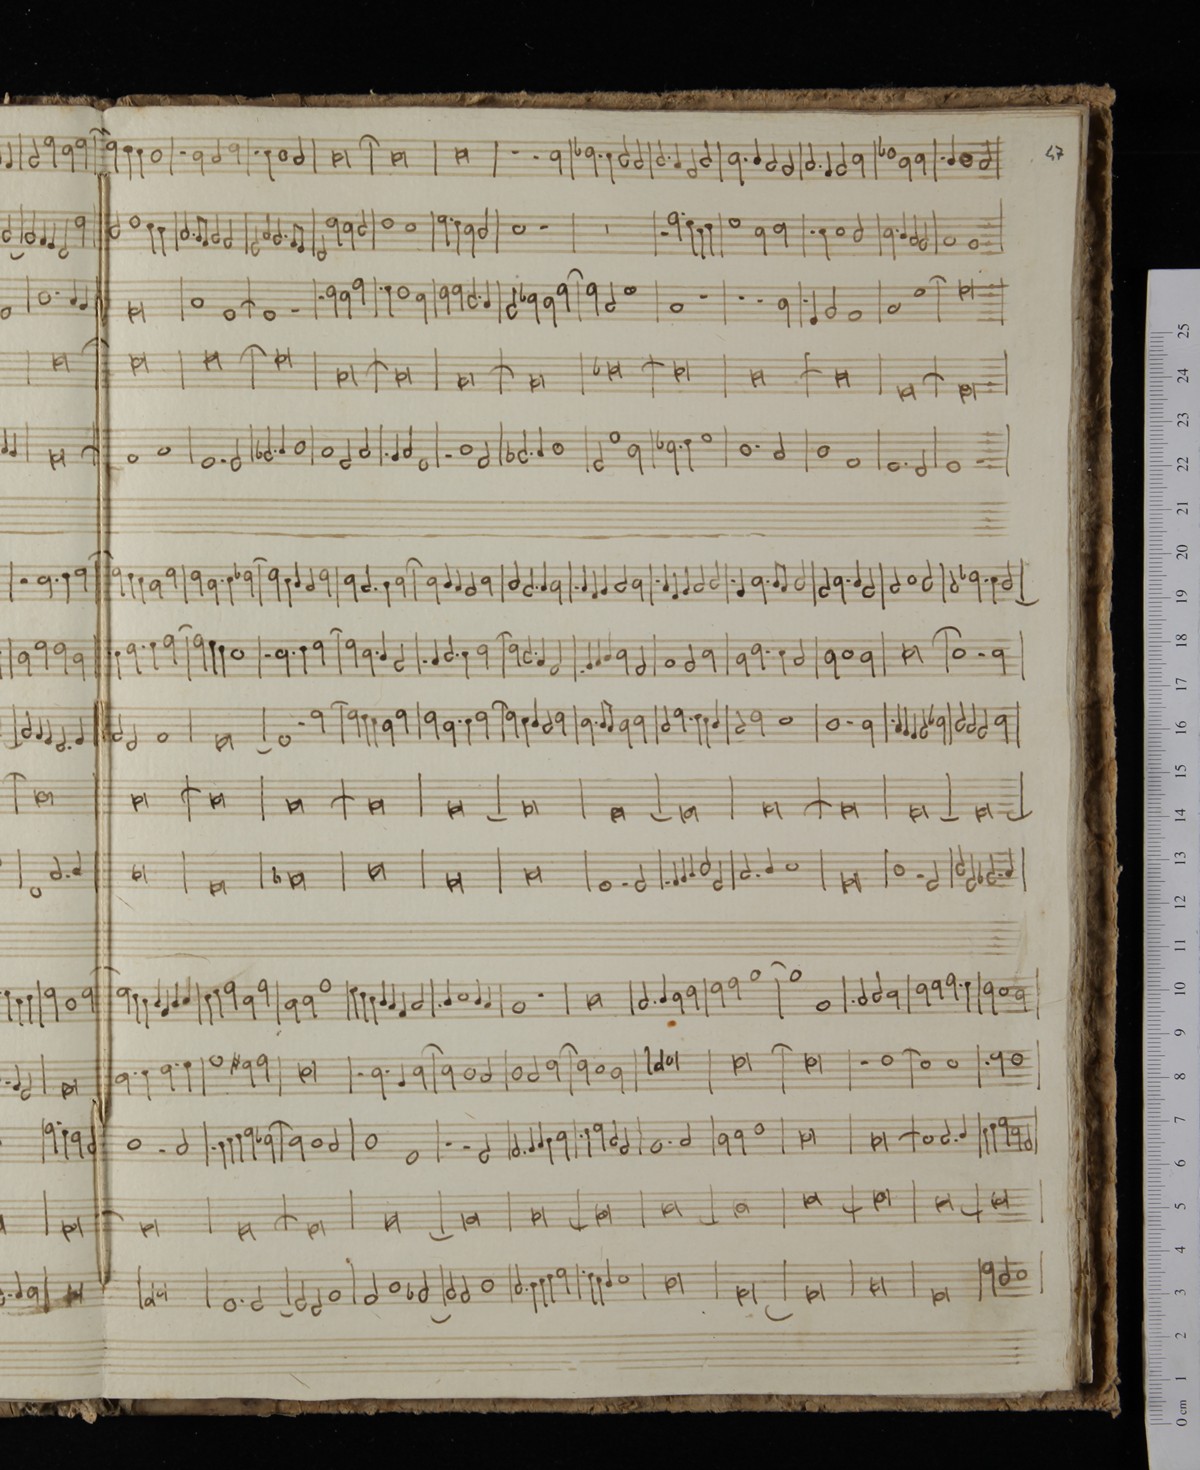 47
25
24
23
22
21
20
19
18
17
16
15
14
13
12
11
10
9
8
7
6
5
4
3
2
1
0 cm